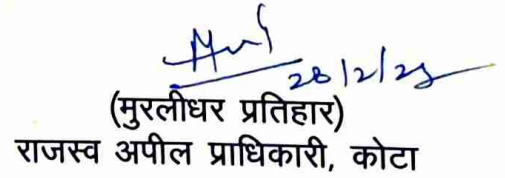 28/2/25
(मुरलीधर प्रतिहार)
राजस्व अपील प्राधिकारी, कोटा